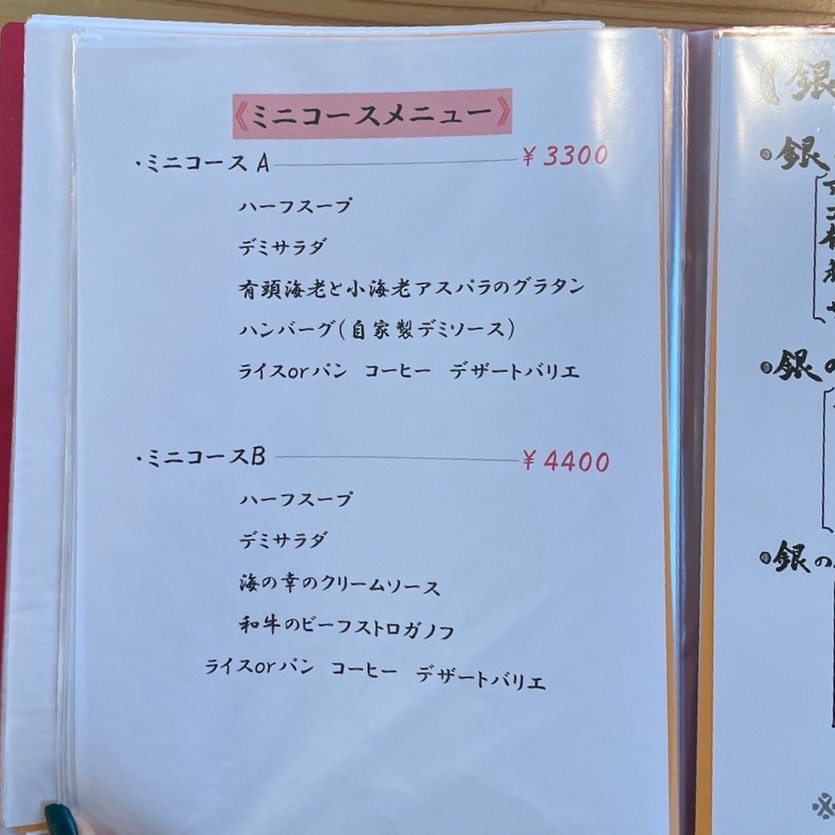 《ミニコースメニュー》
・ミニコース A ¥3300
ハーフスープ
デミサラダ
有頭海老と小海老アスパラのグラタン
ハンバーグ(自家製デミソース)
ライスorパン コーヒー デザートバリエ
・ミニコースB ¥4400
ハーフスープ
デミサラダ
海の幸のクリームソース
和牛のビーフストロガノフ
ライスorパン コーヒー デザートバリエ
銀
銀
銀の
銀の
※